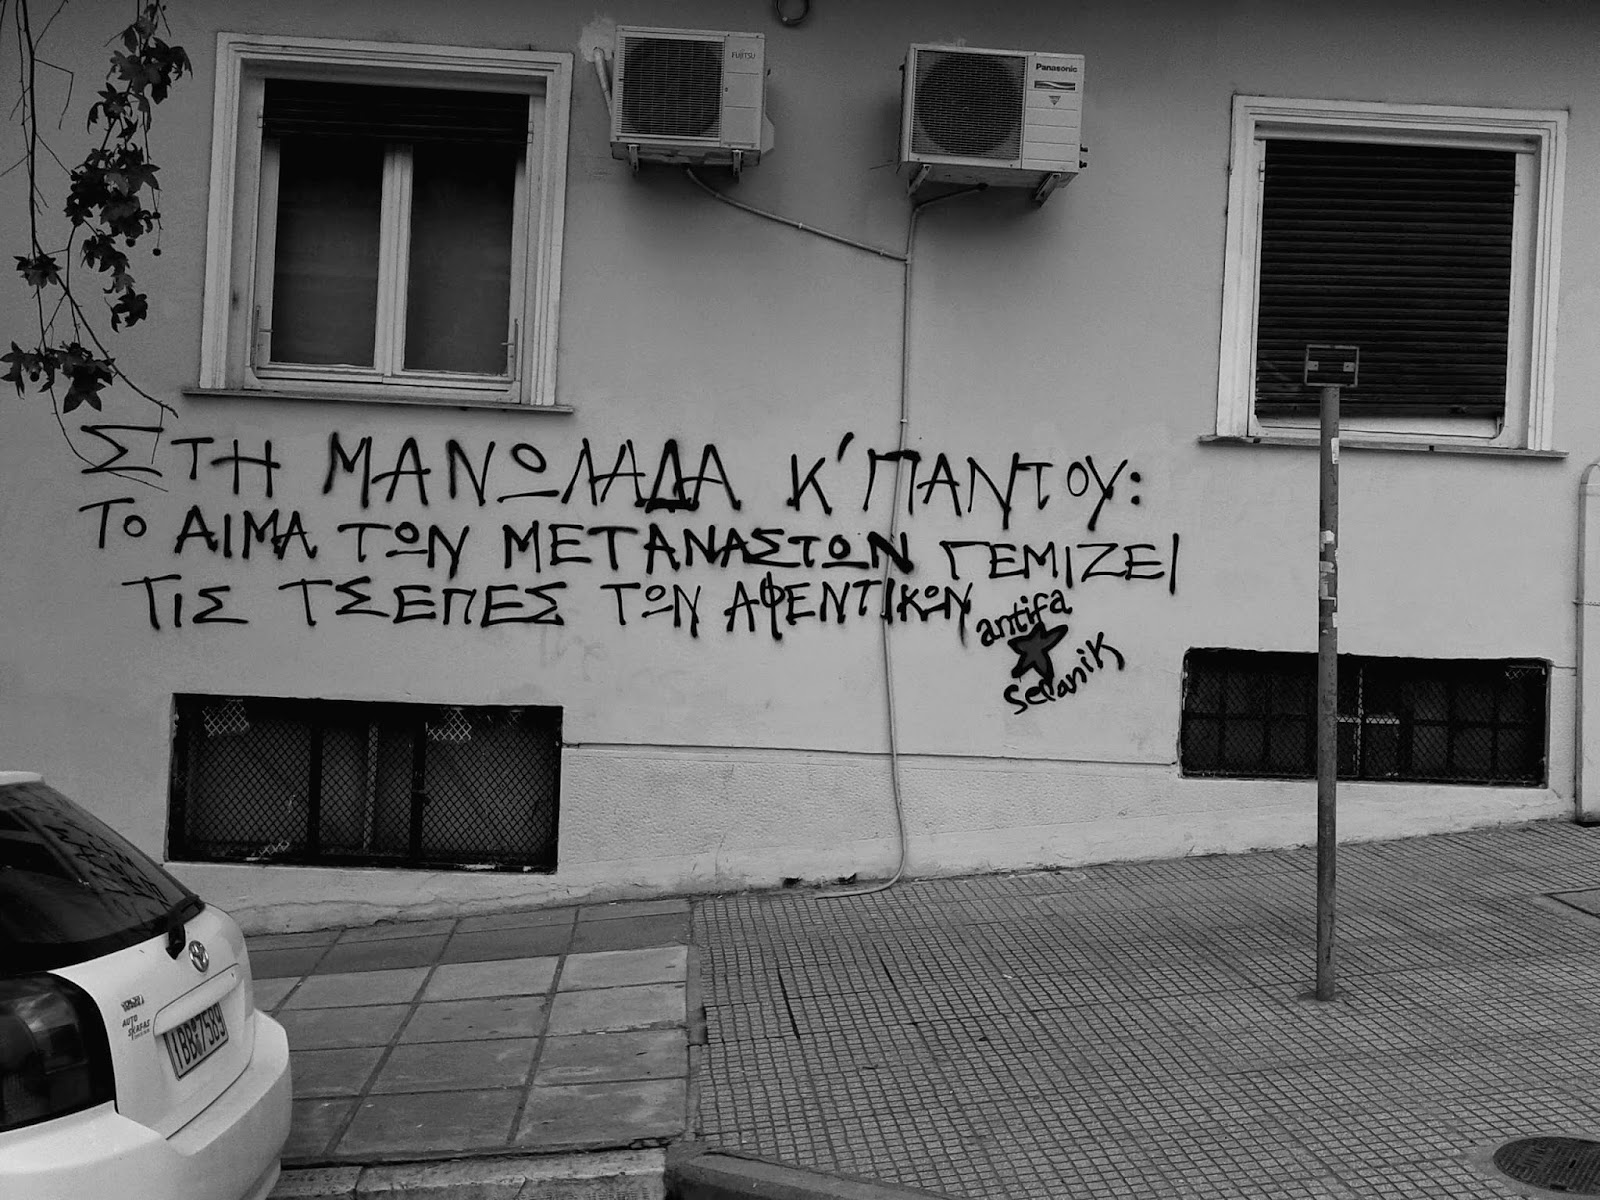 FUJITSU
Panasonic
ΣΤΗ ΜΑΝΩΛΑΔΑ Κ' ΠΑΝΤΟΥ:
ΤΟ ΑΙΜΑ ΤΩΝ ΜΕΤΑΝΑΣΤΩΝ ΓΕΜΙΖΕΙ
ΤΙΣ ΤΣΕΠΕΣ ΤΩΝ ΑΦΕΝΤΙΚΩΝ
antifa
selanik
AUTO
SKAFAS
IBB 7589